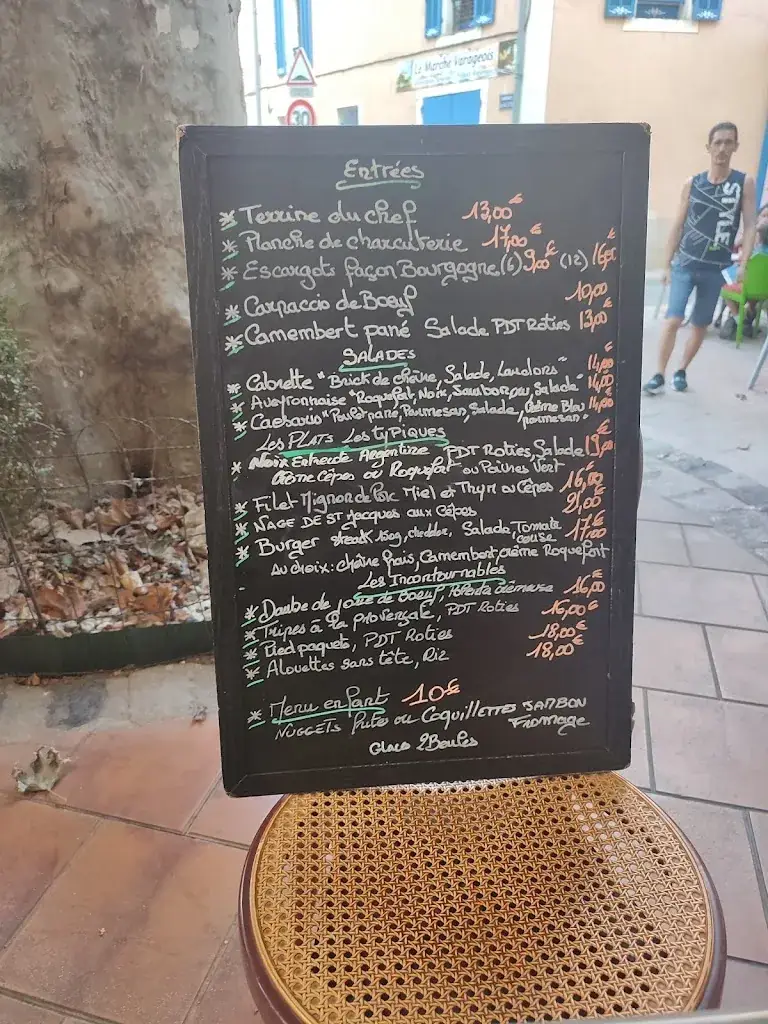 Le Marché Varageois
30
STYLE
Entrées
* Terrine du chef 13,00€
* Planche de charcuterie 17,00€
* Escargots façon Bourgogne (6) 9,00€ (12)
* Carpaccio de Boeuf 10,00
* Camembert pané Salade PDT Roties 13,00€
SALADES
* Cabrette "Brick de chèvre, Salade, Lardons" 14,00€
* Aveyronnaise "Roquefort, Noix, Jambon cru, Salade" 14,00€
* Caesario "Poulet pané, Parmesan, Salade, Crème Bleu 14,00€
parmesan"
Les PLATS Les tyPiques
* Noix Entrecôte Argentine PDT Roties, Salade 19,00€
Crème Cêpes ou Roquefort ou Poivres Vert
* Filet Mignon de Porc Miel et Thym ou Cêpes 16,00€
* NAGE DE ST Jacques aux Cêpes 21,00€
* Burger steack 150g, cheddar, Salade, Tomate 17,00€
Au choix: chèvre frais, Camembert, crème Roquefort
Les Incontournables
* Daube de joue de Boeuf, 16,00€
* Tripes à la provençale, PDT Roties 16,00€
* Pied paquets, PDT Roties 18,00€
* Alouettes sans tête, Riz 18,00€
* Menu enfant 10€
NUGGETS frite ou Coquillettes JAMBON
Fromage
Glace 2 Boules